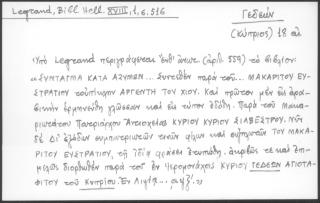 Legrand, Bibl. Hell. XVIII, 1, σ. 516
Γεδεών
(Κύπριος) 18 αἰ.
Ὑπὸ Legrand περιγράφεται ἐνθ' ἀνωτ. (ἀριθ. 559) τὸ βιβλίον:
«ΣΥΝΤΑΓΜΑ ΚΑΤΑ ΑΖΥΜΩΝ... Συντεθὲν παρὰ τοῦ... ΜΑΚΑΡΙΤΟΥ ΕΥ-
ΣΤΡΑΤΙΟΥ τοὐπίκλην ΑΡΓΕΝΤΗ ΤΟΥ ΧΙΟΥ. Καὶ πρῶτον μὲν εἰς ἀρα-
βικὴν ἑρμηνευθὲν γλῶσσαν καὶ εἰς τύπον ἐδόθη. Παρὰ τοῦ Μακα-
ριωτάτου Πατριάρχου Ἀντιοχείας ΚΥΡΙΟΥ ΚΥΡΙΟΥ ΣΙΛΒΕΣΤΡΟΥ. Νῦν
δὲ Δι' ἐξόδων συμπατριωτῶν τινῶν φίλων καὶ συγγενῶν ΤΟΥ ΜΑΚΑ-
ΡΙΤΟΥ ΕΥΣΤΡΑΤΙΟΥ, τῇ ἰδίᾳ φράσει ἐτυπώθη. ἀκριβῶς τε καὶ ἐπι-
μελῶς διορθωθὲν παρὰ τοῦ ἐν Ἱερομονάχοις ΚΥΡΙΟΥ ΓΕΔΕΩΝ ΑΓΙΟΤΑ-
ΦΙΤΟΥ τοῦ Κυπρίου. Ἐν Λειψίᾳ...